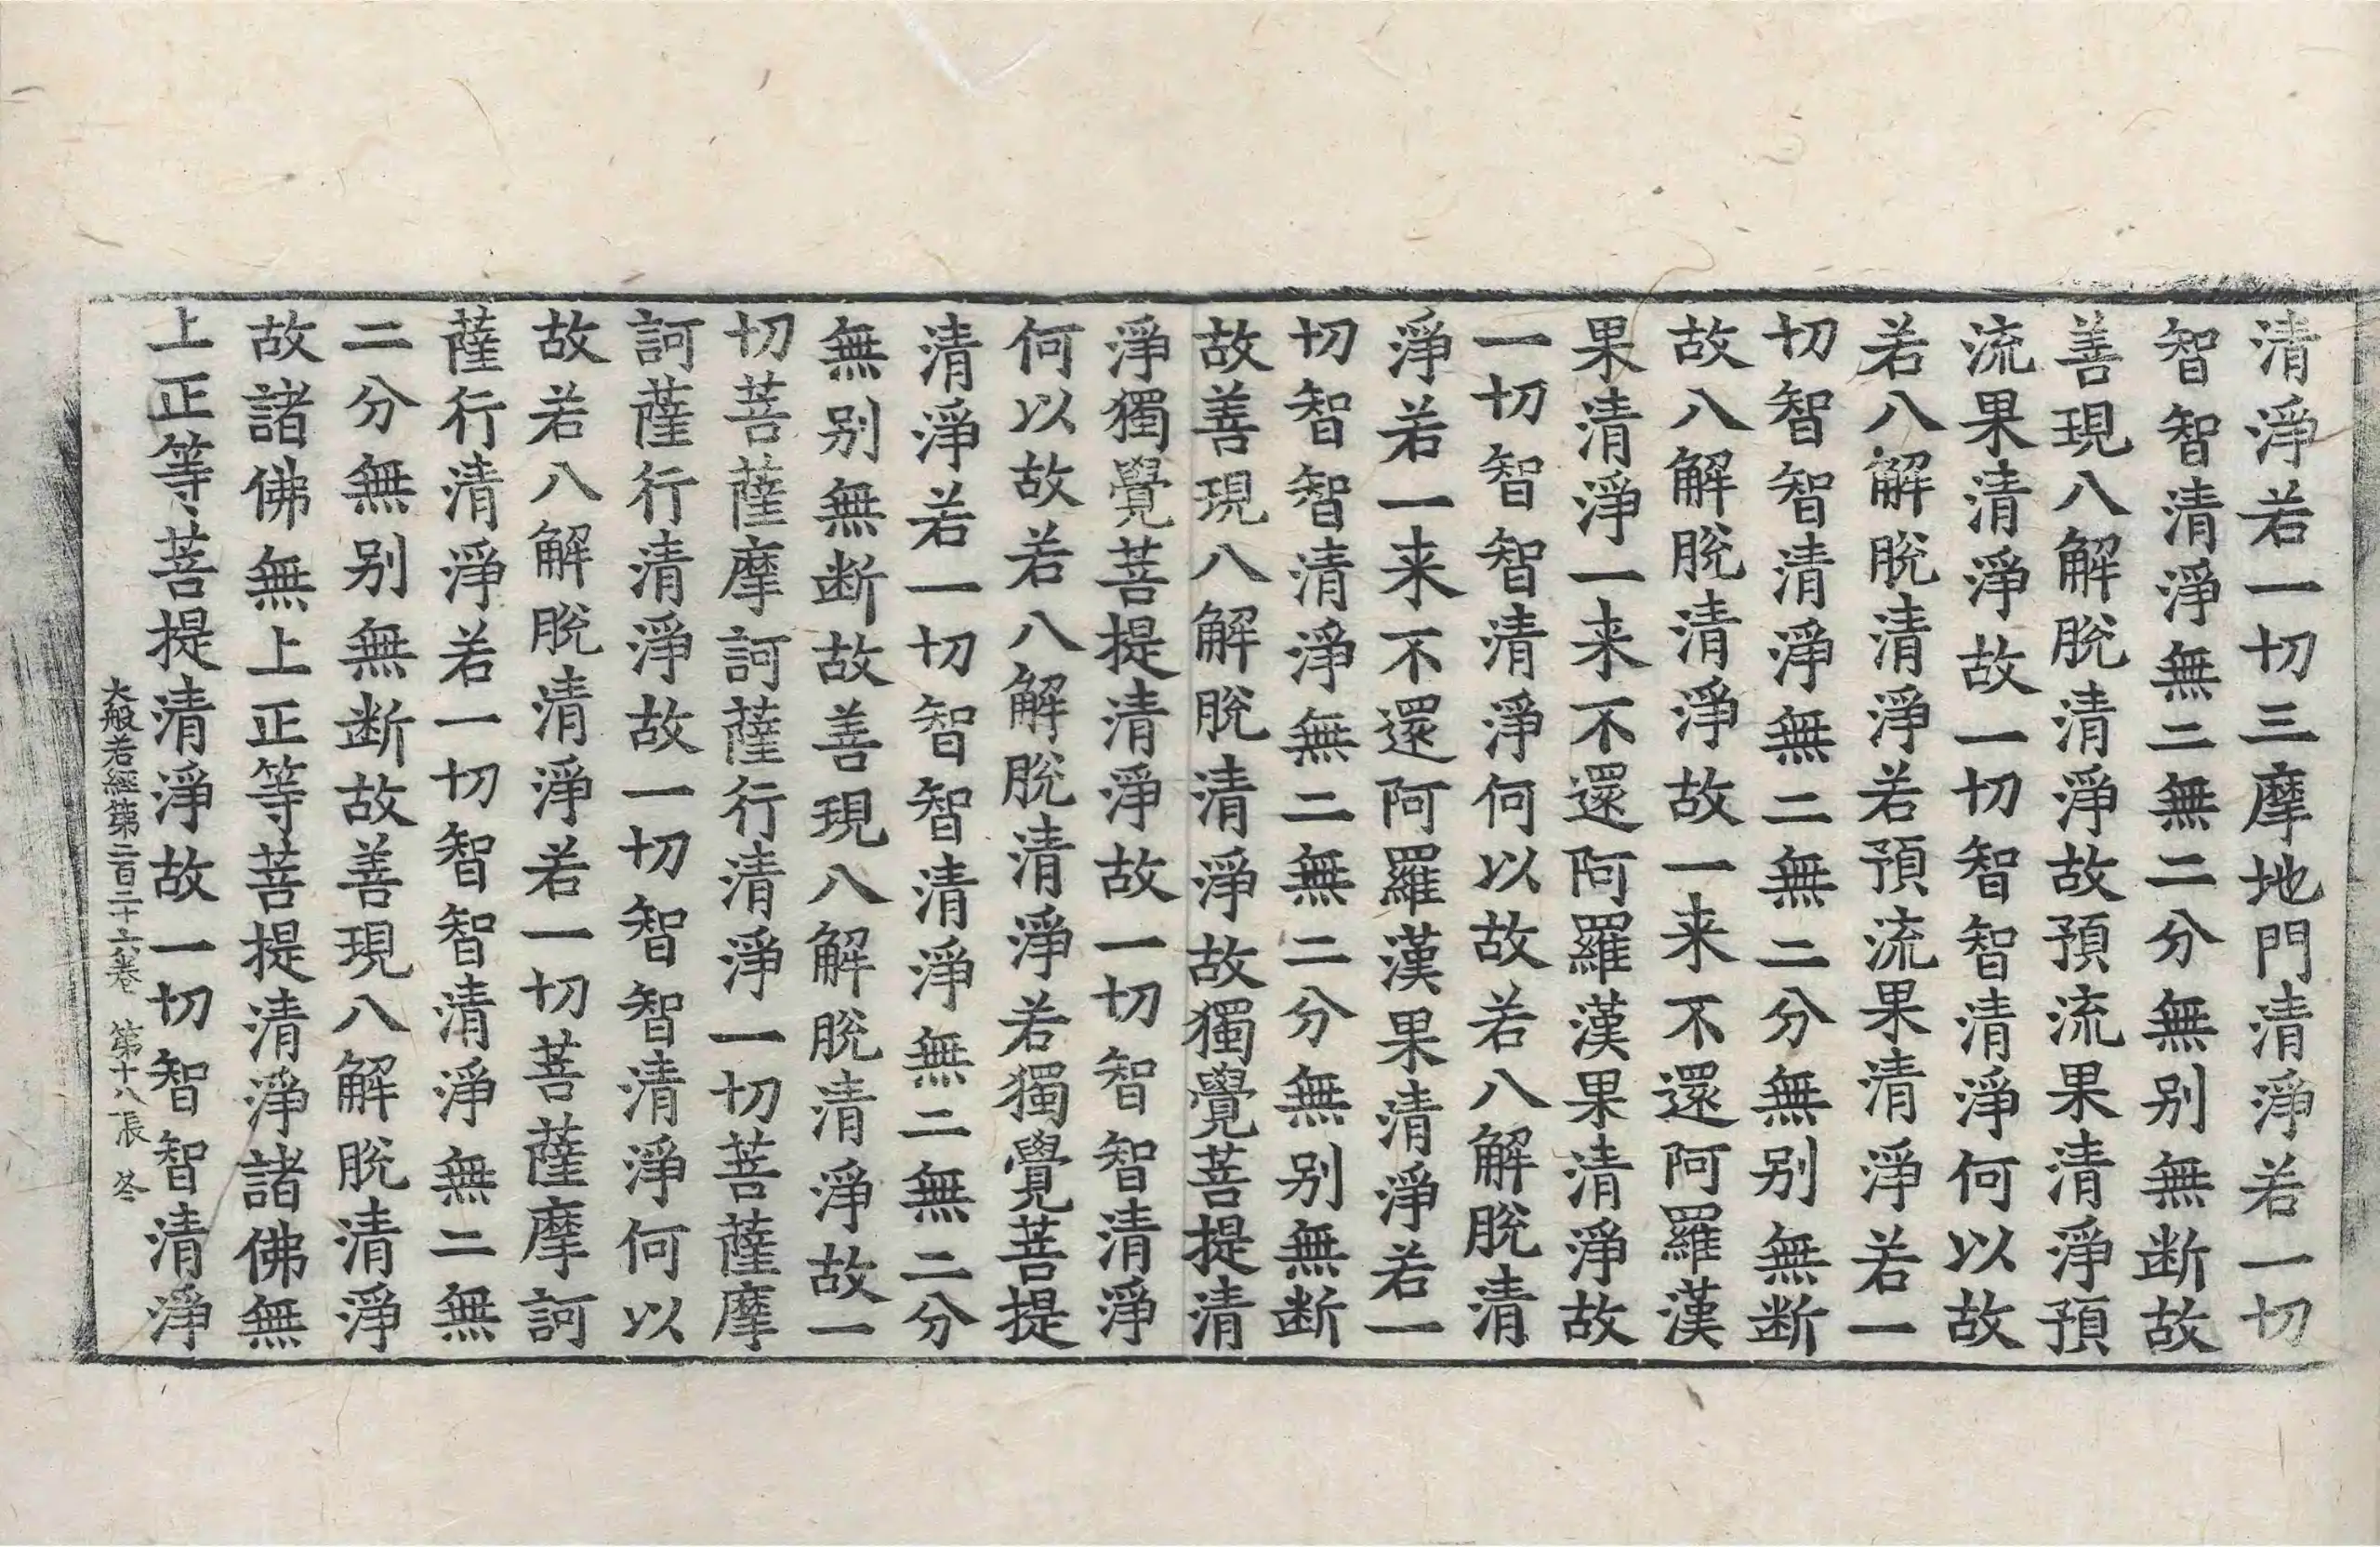 清淨若一切三摩地門清淨若一切
智智清淨無二無二分無别無断故
善現八解脫清淨故預流果清淨預
流果清淨故一切智智清淨何以故
若八解脫清淨若預流果清淨若一
切智智清淨無二無二分無别無断
故八解脫清淨故一来不還阿羅漢
果清淨一来不還阿羅漢果清淨故
一切智智清淨何以故若八解脫清
淨若一来不還阿羅漢果清淨若一
切智智清淨無二無二分無别無断
故善現八解脫清淨故獨覺菩提清
淨獨覺菩提清淨故一切智智清淨
何以故若八解脫清淨若獨覺菩提
清淨若一切智智清淨無二無二分
無别無断故善現八解脫清淨故一
切菩薩摩訶薩行清淨一切菩薩摩
訶薩行清淨故一切智智清淨何以
故若八解脫清淨若一切菩薩摩訶
薩行清淨若一切智智清淨無二無
二分無别無断故善現八解脫清淨
故諸佛無上正等菩提清淨諸佛無
上正等菩提清淨故一切智智清淨
大般若經第二百三十六卷 第十八張 冬